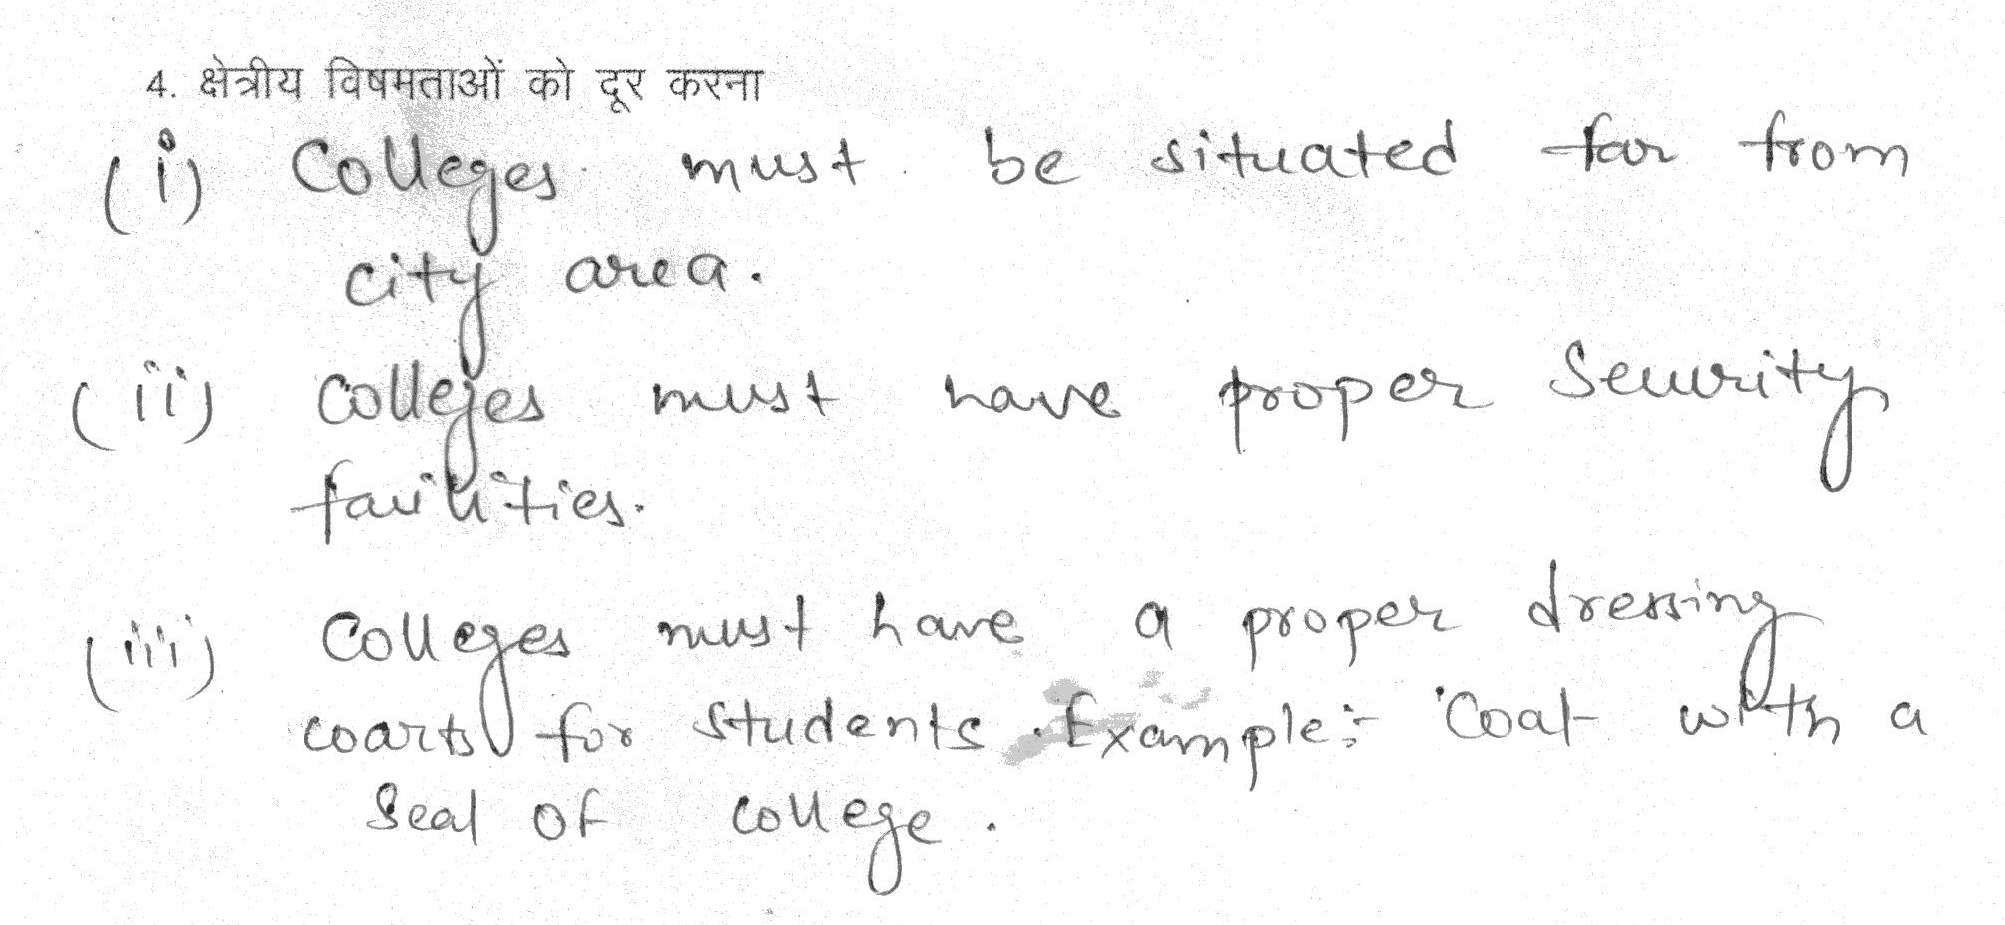 4. क्षेत्रीय विषमताओं को दूर करना
(i) Colleges must be situated far from
city area.
(ii) Colleges must have proper Security
facilities.
(iii) Colleges must have a proper dressing
coarts for students. Example:- Coat with a
Seal of college.